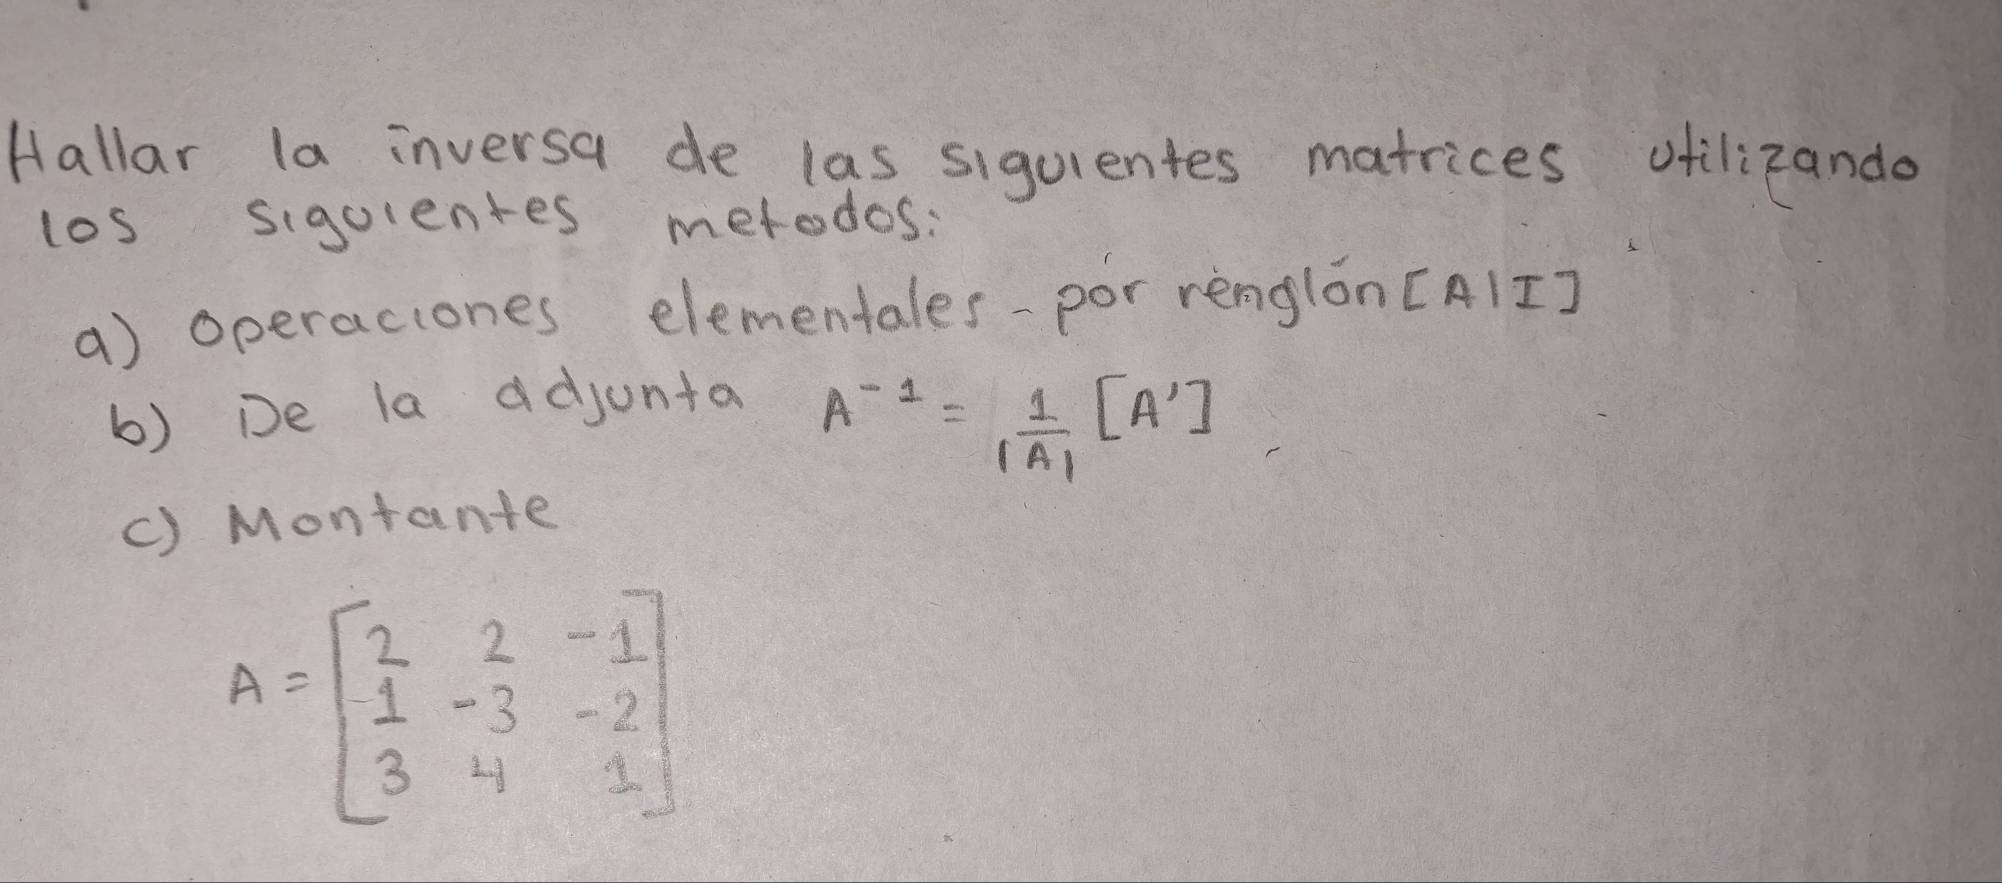 Hallar la inversa de las siguientes matrices utilizando
los siguientes metodos:
a) Operaciones elementales - por renglón [A|I]
b) De la adjunta A⁻¹ = 1/|A| [A']
c) Montante
A = [2 2 -1
1 -3 -2
3 4 1]